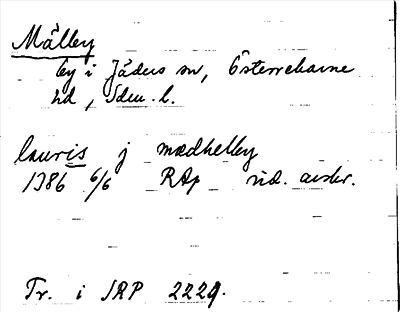 Mälby
by i Jäders sn, Österrekarne
hd, Södm. l.
lauris j mædhelby
1386 6/6 RAp vid. avskr.
Tr. i SRP 2229.